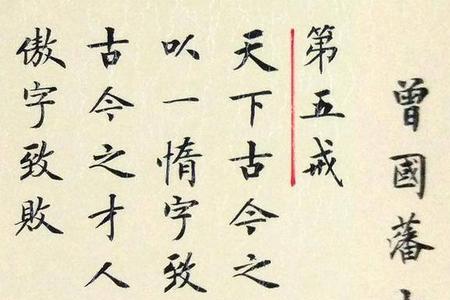 曾國藩
第五戒
天下古今之
以一惰字致
古今之才人
傲字致敗